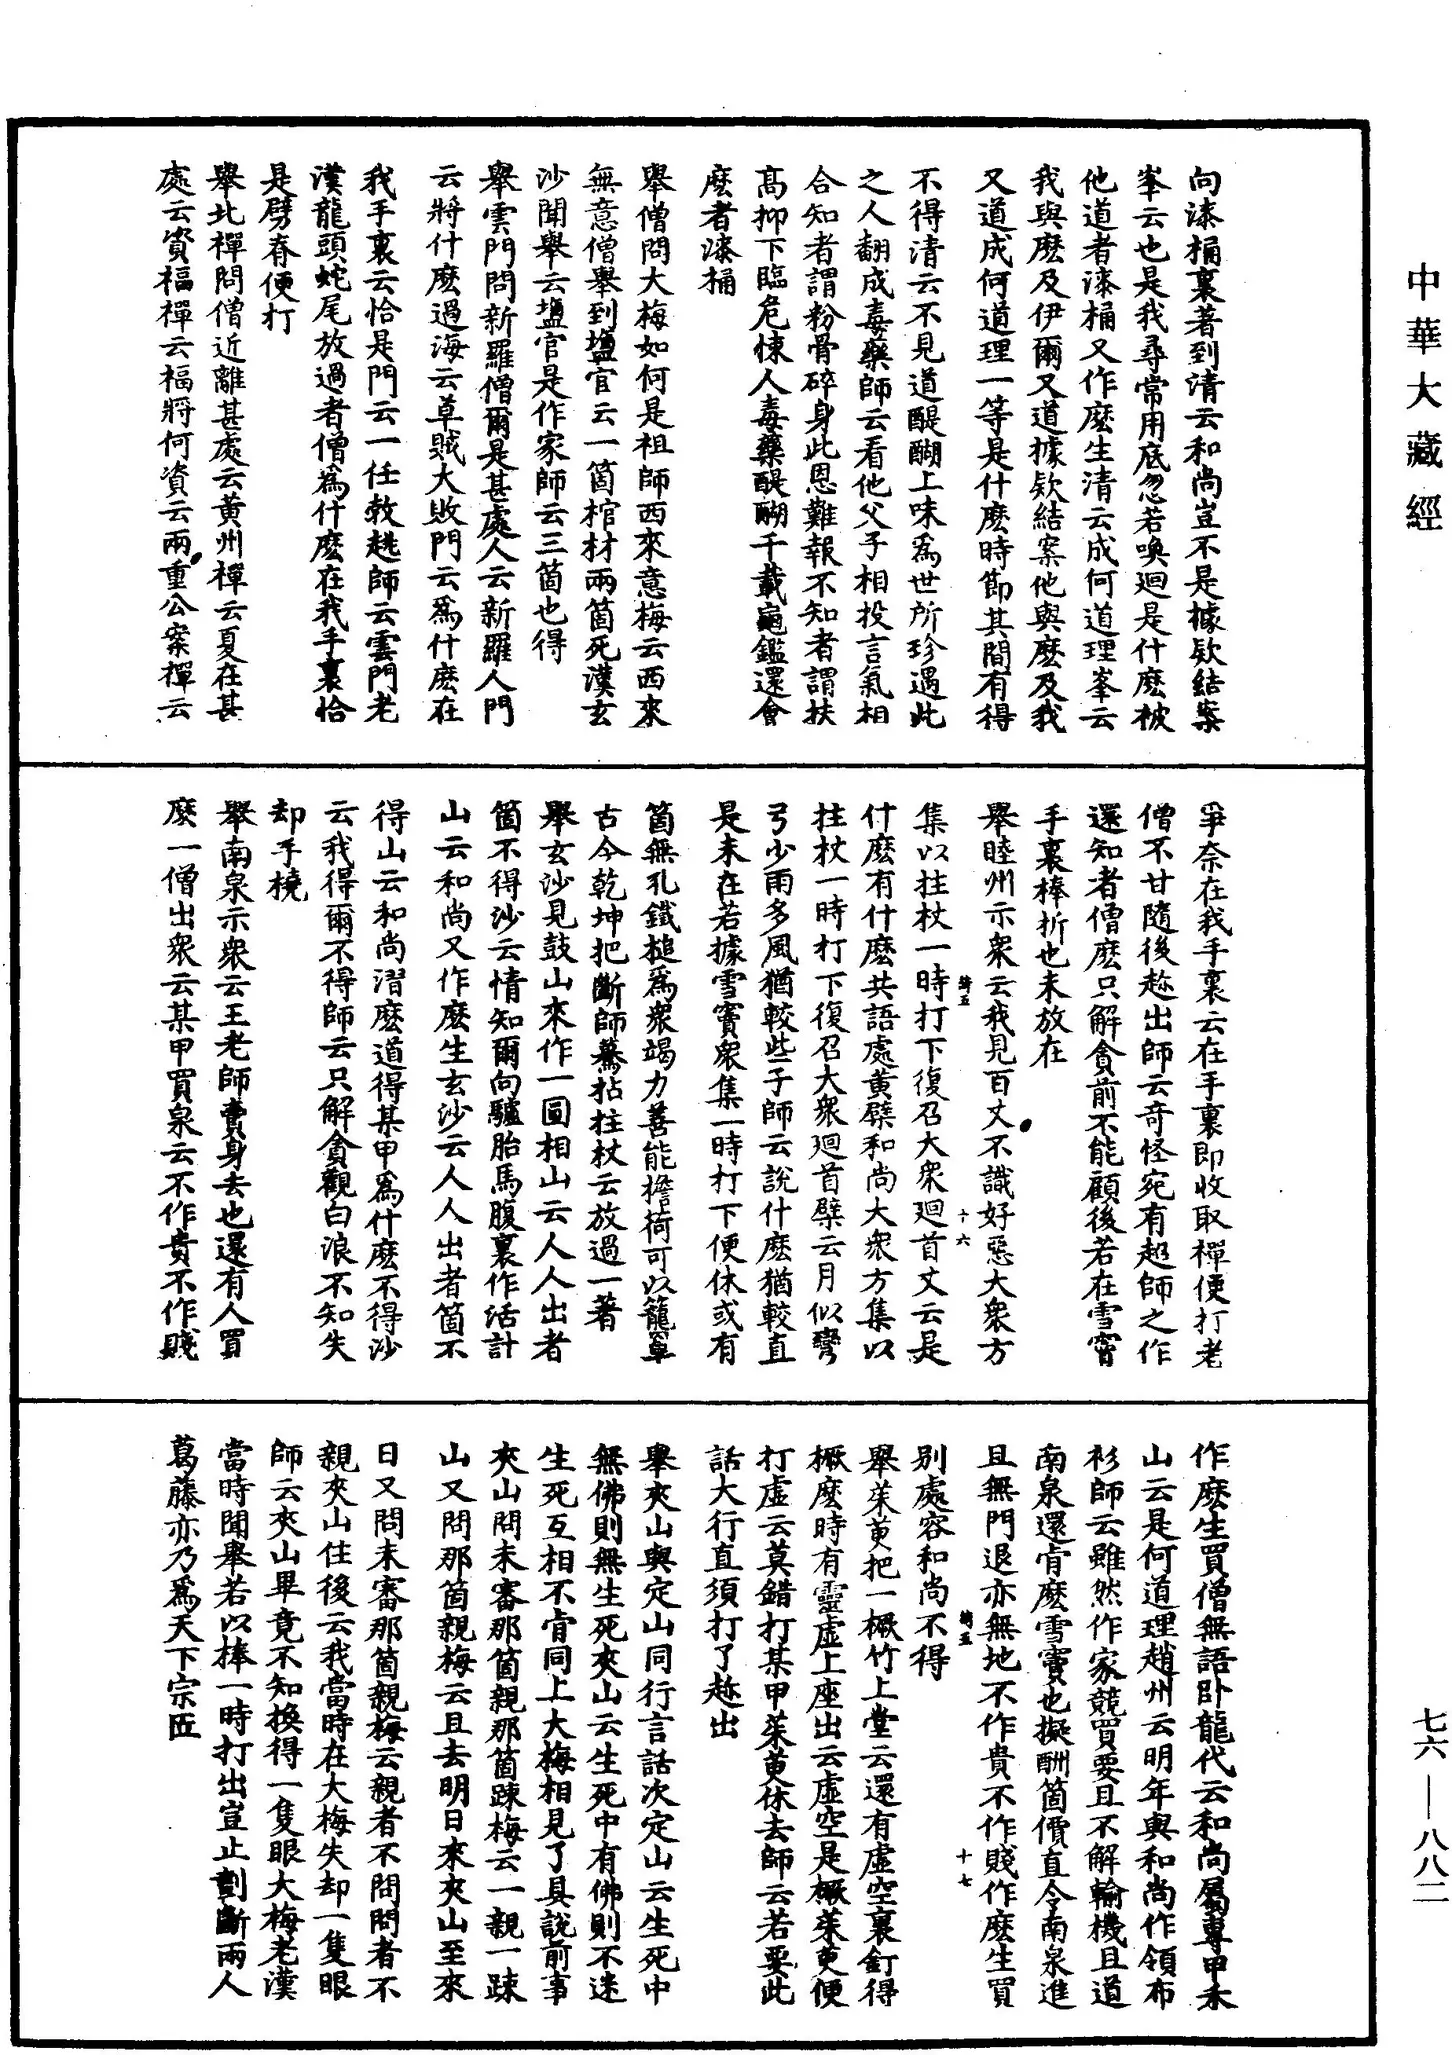 中華大藏經
向漆桶裏著到清云和尚豈不是據欵結案
峯云也是我尋常用底忽若喚迴是什麽被
他道者漆桶又作麽生清云成何道理峯云
我與麽及伊爾又道據欵結案他與麽及我
又道成何道理一等是什麽時節其間有得
不得清云不見道醍醐上味爲世所珍遇此
之人翻成毒藥師云看他父子相投言氣相
合知者謂粉骨碎身此恩難報不知者謂扶
高抑下臨危悚人毒藥醍醐千載龜鑑還會
麽者漆桶
舉僧問大梅如何是祖師西來意梅云西來
無意僧舉到塩官云一箇棺材兩箇死漢玄
沙聞舉云塩官是作家師云三箇也得
舉雲門問新羅僧爾是甚處人云新羅人門
云將什麽過海云草賊大敗門云爲什麽在
我手裏云恰是門云一任𨁝跳師云雲門老
漢龍頭蛇尾放過者僧爲什麽在我手裏恰
是劈脊便打
舉北禪問僧近離甚處云黄州禪云夏在甚
處云資福禪云福將何資云兩重公案禪云
爭奈在我手裏云在手裏即收取禪便打老
僧不甘隨後趂出師云奇怪宛有超師之作
還知者僧麽只解貪前不能顧後若在雪竇
手裏棒折也未放在
舉睦州示衆云我見百丈不識好惡大衆方
集以拄杖一時打下復召大衆迴首丈云是
什麽有什麽共語處黄檗和尚大衆方集以
拄杖一時打下復召大衆迴首檗云月似彎
弓少雨多風猶較些子師云說什麽猶較直
是未在若據雪竇衆集一時打下便休或有
箇無孔鐵槌爲衆竭力善能擔荷可以籠罩
古今乾坤把斷師驀拈拄杖云放過一著
舉玄沙見鼓山來作一圓相山云人人出者
箇不得沙云情知爾向驢胎馬腹裏作活計
山云和尚又作麽生玄沙云人人出者箇不
得山云和尚㴭麽道得某甲爲什麽不得沙
云我得爾不得師云只解貪觀白浪不知失
却手橈
舉南泉示衆云王老師賣身去也還有人買
麽一僧出衆云某甲買泉云不作貴不作賤
作麽生買僧無語卧龍代云和尚屬專甲禾
山云是何道理趙州云明年與和尚作領布
衫師云雖然作家競買要且不解輸機且道
南泉還肯麽雪竇也擬酬箇價直令南泉進
且無門退亦無地不作貴不作賤作麽生買
別處容和尚不得
舉茱萸把一橛竹上堂云還有虛空裏釘得
橛麽時有靈虛上座出云虛空是橛茱萸便
打虛云莫錯打某甲茱萸休去師云若要此
話大行直須打了趂出
舉夾山與定山同行言話次定山云生死中
無佛則無生死夾山云生死中有佛則不迷
生死互相不肯同上大梅相見了具說前事
夾山問未審那箇親那箇踈梅云一親一踈
山又問那箇親梅云且去明日來夾山至來
日又問未審那箇親梅云親者不問問者不
親夾山住後云我當時在大梅失却一隻眼
師云夾山畢竟不知換得一隻眼大梅老漢
當時聞舉若以捧一時打出豈止劃斷兩人
葛藤亦乃爲天下宗匠
十六
十七
七六—八八二